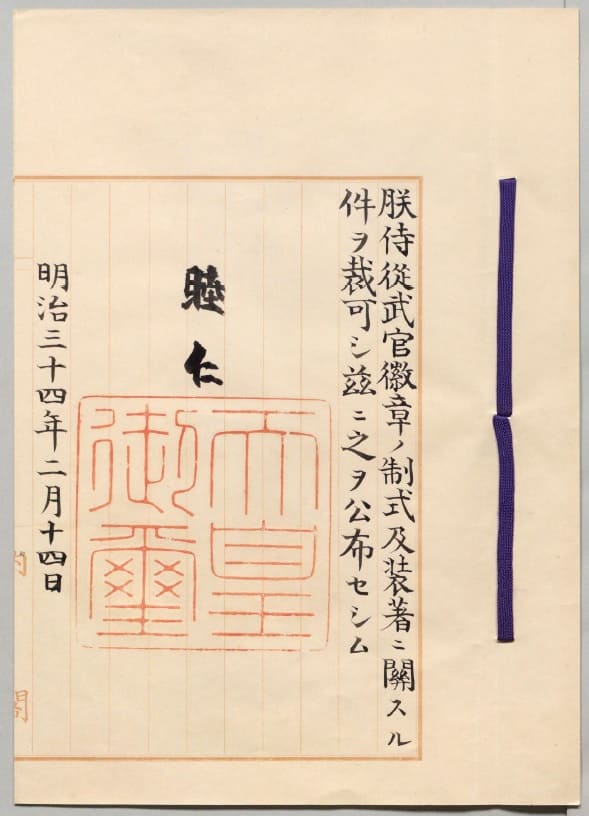 朕侍從武官徽章ノ制式及装著ニ關スル
件ヲ裁可シ茲ニ之ヲ公布セシム
睦仁
天皇
御璽
明治三十四年二月十四日
内閣